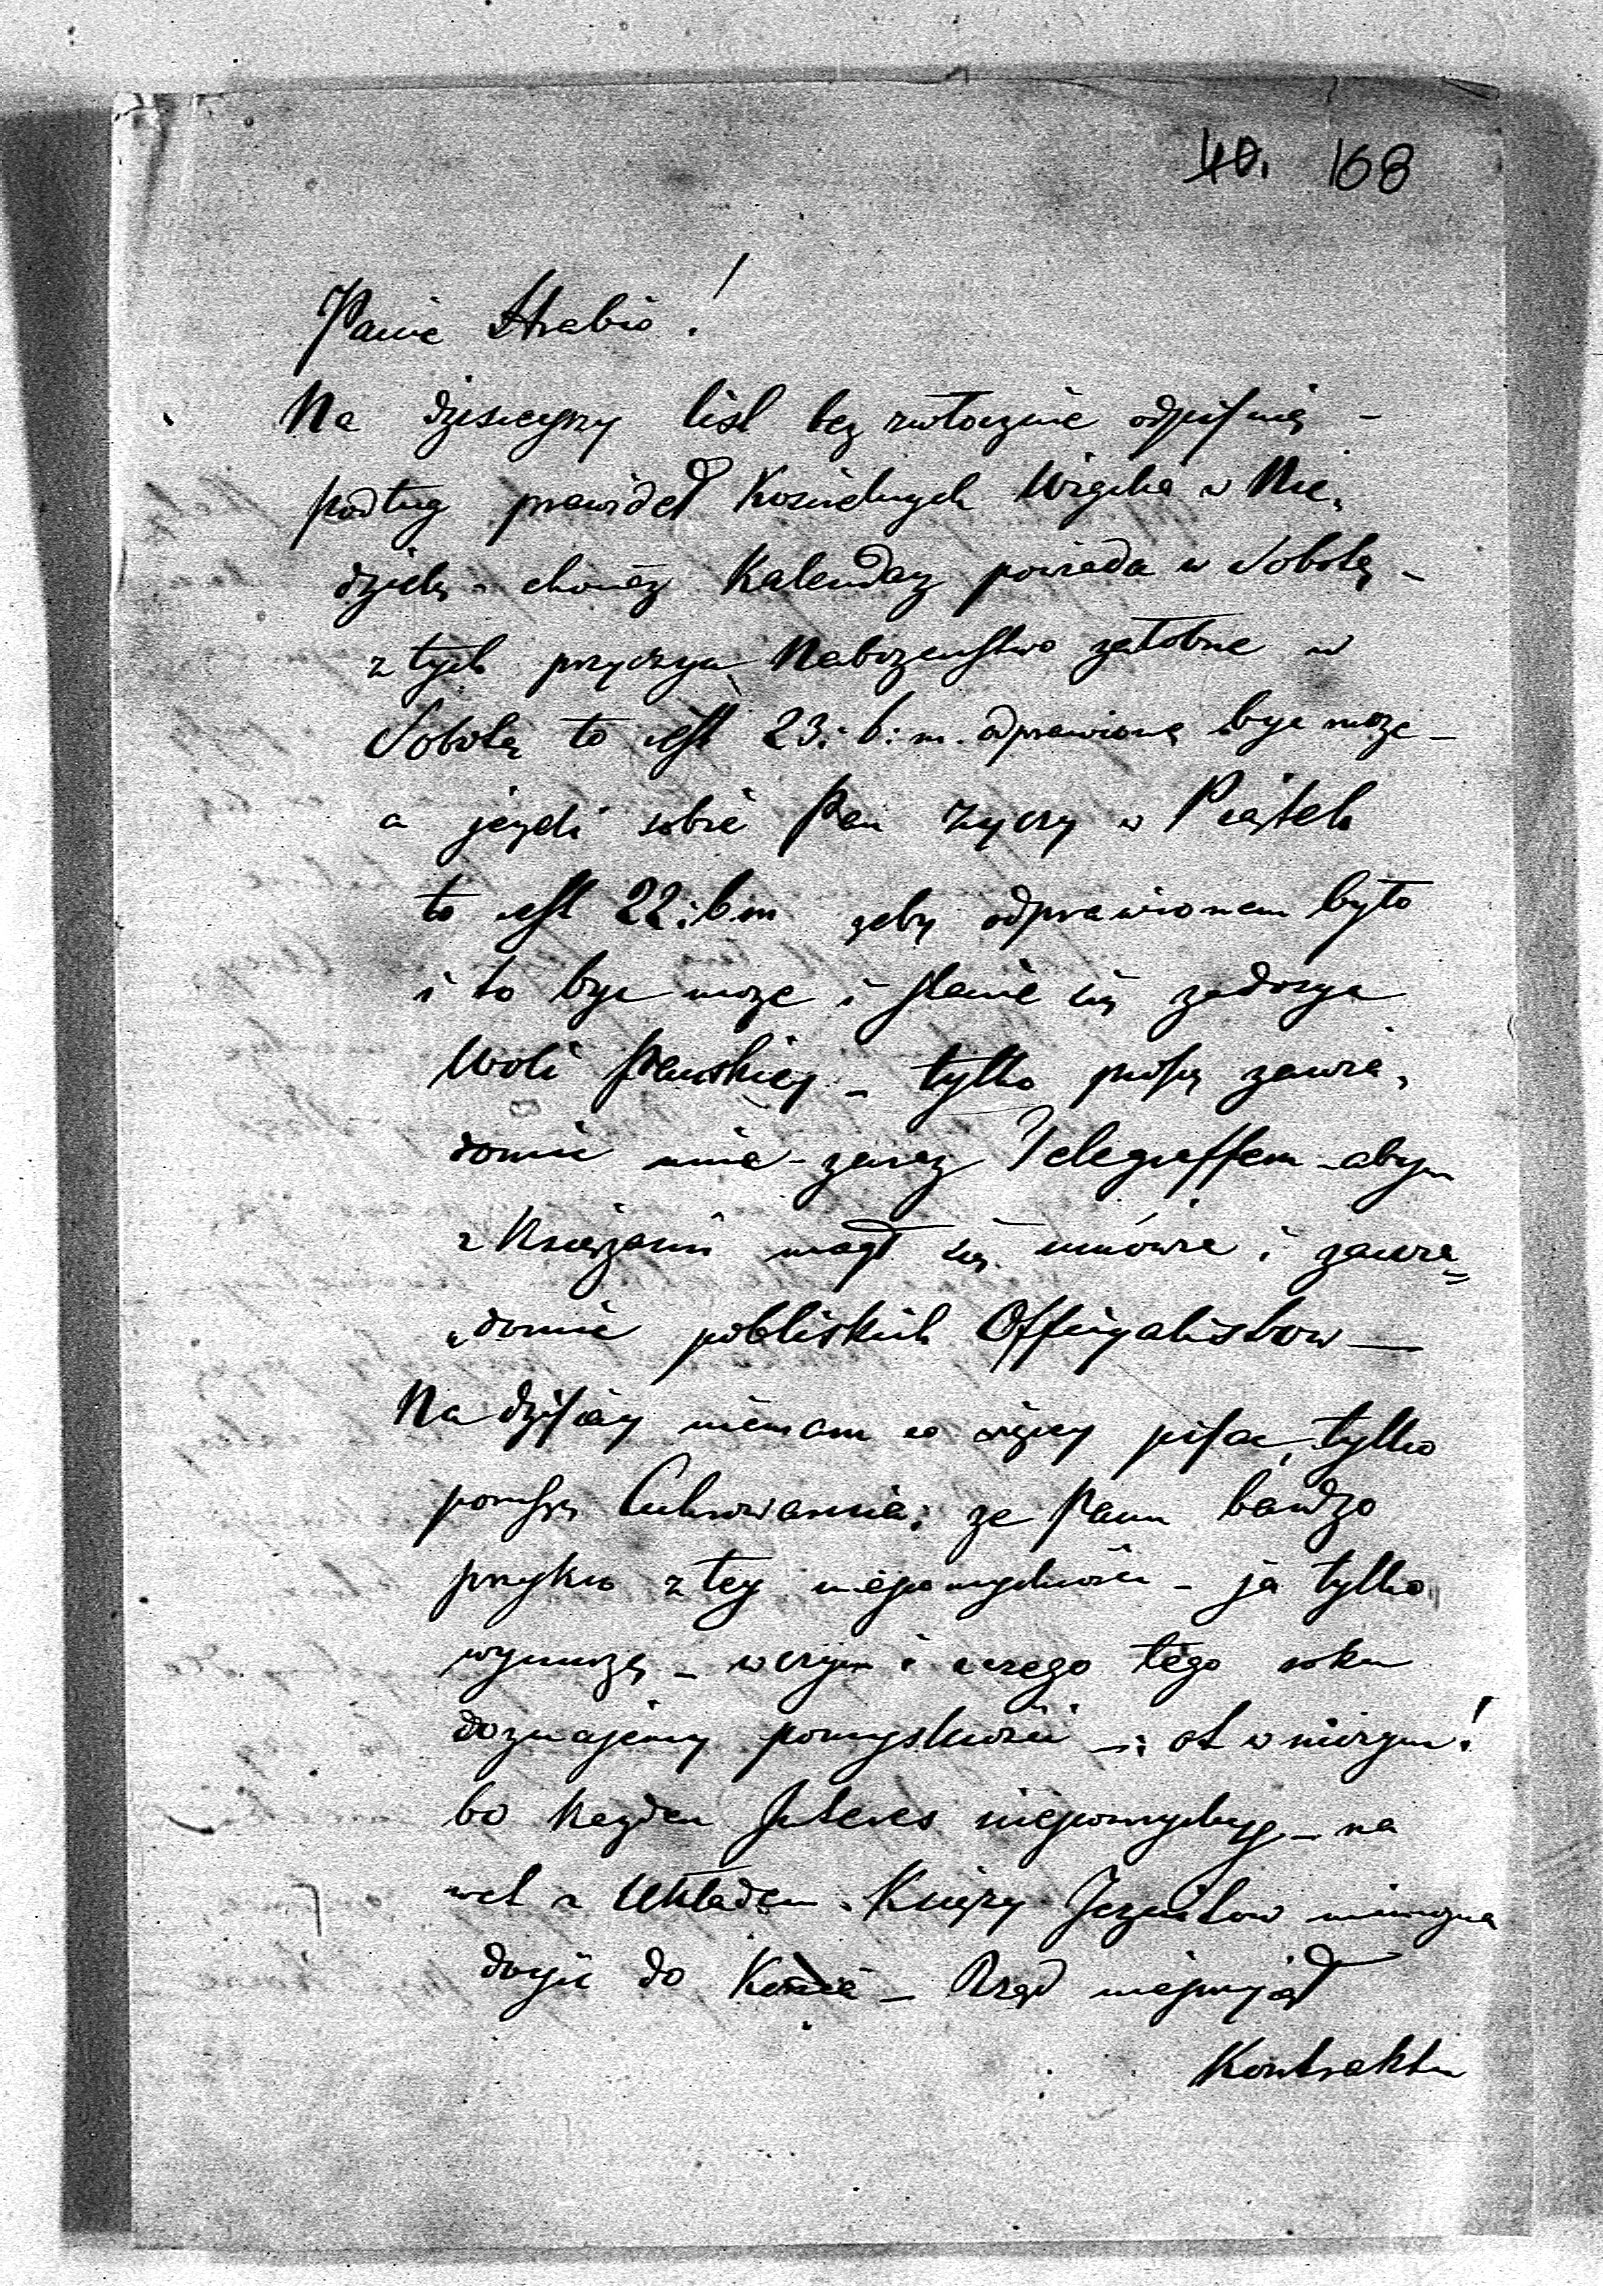 40. 168
Panie Hrabio!
Na dzisieyszy list bezzwłocznie odpisuię -
podług prawideł Kościelnych Wigilia w Nie„
dzielę - chociaż Kalendarz powiada w Sobotę -
z tych przyczyn Nabożeństwo żałobne w
Sobotę to iest 23: b: m. odprawione byc może -
a jeżeli sobie Pan życzy w Piątek
to iest 22: b. m żeby odprawionem było
i to byc może i stanie się zadosyc
Woli Pańskiey - tylko proszę zawia„
domić mie - zaraz Telegraffem - abym
z Księżami mógł się umówic i zawia„
„domić pobliskich Officyalistow —
Na dzisiay niemam co więcy pisac, tylko
Cukrowarnia; że Panu bardzo
przykro z tey niepomyślności - ja tylko
- w czym i czego tego roku
doznajemy pomyślności -: ot w niczym!
bo każden Interes niepomyślny - na
wet z Układem Księży Jezuitow niemożna
dojść do Końca - Rząd nieprzyjął
Kontraktu